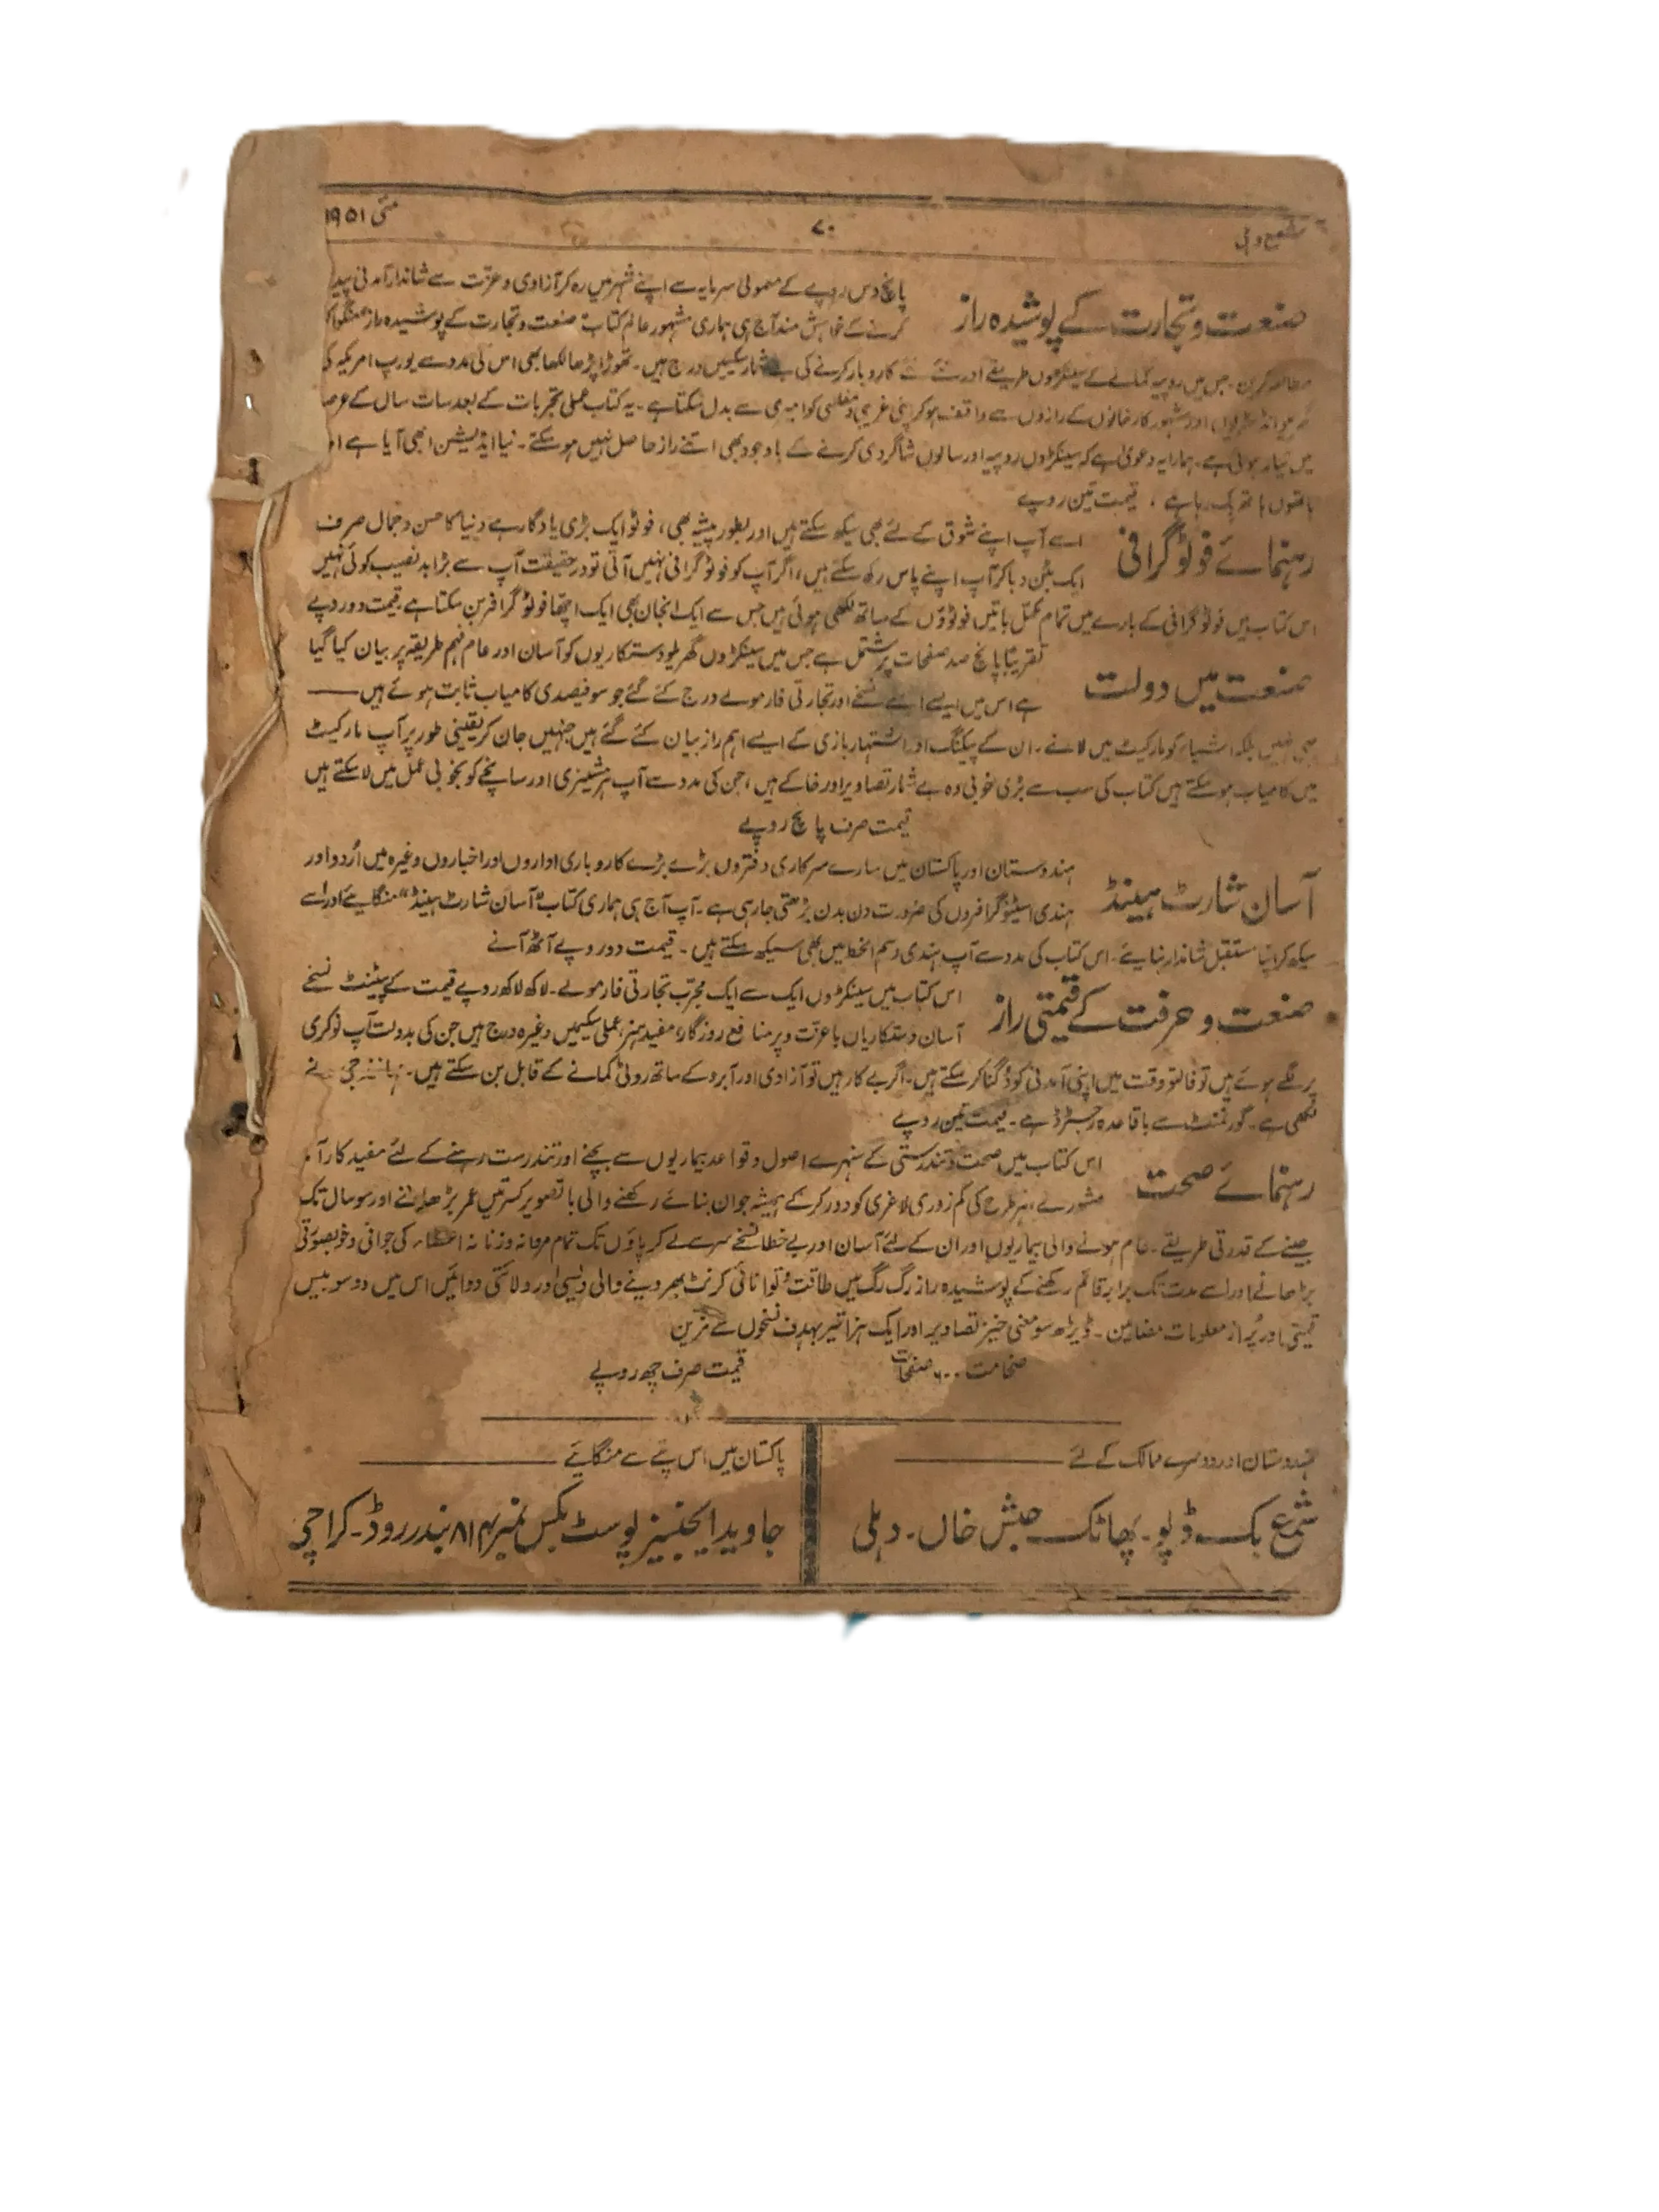 شمع دہلی
۷۰
مئی ۱۹۵۱
صنعت و تجارت کے پوشیدہ راز
پانچ دس روپے کے معمولی سرمایہ سے اپنے شہر میں رہ کر آزادی و عزّت سے شاندار آمدنی پیدا
کرنے کے خواہش مند آج ہی ہماری مشہور عالم کتاب صنعت و تجارت کے پوشیدہ راز منگوا کر
مطالعہ کریں۔ جس میں روپیہ کمانے کے سینکڑوں طریقے اور نئے نئے کاروبار کرنے کی بے شمار سکیمیں درج ہیں۔ تھوڑا پڑھا لکھا بھی اس کی مدد سے یورپ امریکہ کی
گھریلو انڈسٹریوں اور مشہور کارخانوں کے رازوں سے واقف ہو کر اپنی غریبی و مفلسی کو امیری سے بدل سکتا ہے۔ یہ کتاب عملی تجربات کے بعد سات سال کے عرصہ
میں تیار ہوئی ہے۔ ہمارا یہ دعویٰ ہے کہ سینکڑوں روپیہ اور سالوں شاگردی کرنے کے باوجود بھی اتنے راز حاصل نہیں ہو سکتے۔ نیا ایڈیشن ابھی آیا ہے
ہاتھوں ہاتھ بک رہا ہے۔ قیمت تین روپے
رہنمائے فوٹوگرافی
اسے آپ اپنے شوق کے لئے بھی سیکھ سکتے ہیں اور بطور پیشہ بھی، فوٹو ایک بڑی یادگار ہے دنیا کا حسن و جمال صرف
ایک بٹن دبا کر آپ اپنے پاس رکھ سکتے ہیں، اگر آپ کو فوٹوگرافی نہیں آتی تو درحقیقت آپ سے بڑا بدنصیب کوئی نہیں
اس کتاب میں فوٹوگرافی کے بارے میں تمام مکمل باتیں فوٹوؤں کے ساتھ لکھی ہوئی ہیں جس سے ایک انجان بھی ایک اچھا فوٹوگرافر بن سکتا ہے قیمت دو روپے
صنعت میں دولت
تقریباً پانچ صد صفحات پر مشتمل ہے جس میں سینکڑوں گھریلو دستکاریوں کو آسان اور عام فہم طریقہ پر بیان کیا گیا
ہے اس میں ایسے ایسے نسخے اور تجارتی فارمولے درج کئے گئے جو سو فیصدی کامیاب ثابت ہوئے ہیں
یہی نہیں بلکہ اشیاء کو مارکیٹ میں لانے۔ ان کے پیکنگ اور اشتہار بازی کے ایسے اہم راز بیان کئے گئے ہیں جنہیں جان کر یقینی طور پر آپ مارکیٹ
میں کامیاب ہو سکتے ہیں کتاب کی سب سے بڑی خوبی وہ بے شمار تصاویر اور خاکے ہیں، جن کی مدد سے آپ ہر مشینری اور سانچے کو بخوبی عمل میں لا سکتے ہیں
قیمت صرف پانچ روپے
آسان شارٹ ہینڈ
ہندوستان اور پاکستان میں سارے سرکاری دفتروں بڑے بڑے کاروباری اداروں اور اخباروں وغیرہ میں اُردو اور
ہندی اسٹینوگرافروں کی ضرورت دن بدن بڑھتی جا رہی ہے۔ آپ آج ہی ہماری کتاب "آسان شارٹ ہینڈ" منگایئے اور اسے
سیکھ کر اپنا مستقبل شاندار بنایئے۔ اس کتاب کی مدد سے آپ ہندی رسم الخط میں بھی سیکھ سکتے ہیں۔ قیمت دو روپے آٹھ آنے
صنعت و حرفت کے قیمتی راز
اس کتاب میں سینکڑوں ایک سے ایک مجرّب تجارتی فارمولے۔ لاکھ لاکھ روپے قیمت کے پیٹنٹ نسخے
آسان دستکاریاں باعزت و پرمنافع روزگار، مفید ہنر، عملی سکیمیں وغیرہ درج ہیں جن کی بدولت آپ نوکری
پر لگے ہوئے ہیں تو فالتو وقت میں اپنی آمدنی کو دُگنا کر سکتے ہیں۔ اگر بے کار ہیں تو آزادی اور آبرو کے ساتھ روٹی کمانے کے قابل بن سکتے ہیں۔ جی نے
لکھی ہے۔ گورنمنٹ سے باقاعدہ رجسٹرڈ ہے۔ قیمت تین روپے
رہنمائے صحت
اس کتاب میں صحت و تندرستی کے سنہرے اصول و قواعد بیماریوں سے بچنے اور تندرست رہنے کے لئے مفید کارآمد
مشورے، ہر طرح کی کمزوری لاغری کو دور کر کے ہمیشہ جوان بنائے رکھنے والی باتصویر کسرتیں عمر بڑھانے اور سو سال تک
جینے کے قدرتی طریقے۔ عام ہونے والی بیماریوں اور ان کے لئے آسان اور بے خطا نسخے سر سے لے کر پاؤں تک تمام مردانہ و زنانہ اعضاء کی جوانی و خوبصورتی
بڑھانے اور اسے مدت تک برابر قائم رکھنے کے پوشیدہ راز رگ رگ میں طاقت و توانائی کرنٹ بھر دینے والی دیسی اور ولائتی دوائیں اس میں دو سو بیس
قیمتی اور پُر از معلومات مضامین۔ ڈیڑھ سو معنی خیز تصاویر اور ایک ہزار تیر بہدف نسخوں سے مزین
ضخامت ۶۰۰ صفحات قیمت صرف چھ روپے
ہندوستان اور دوسرے ممالک کے لئے
شمع بک ڈپو۔ پھاٹک حبش خاں۔ دہلی
پاکستان میں اس پتے سے منگایئے
جاوید ایجنسیز پوسٹ بکس نمبر بندر روڈ۔ کراچی